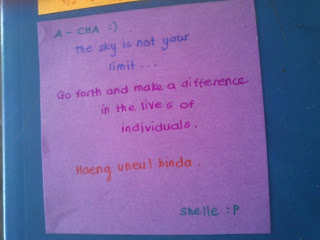 A - CHA :)
The sky is not your
limit...
Go forth and make a difference
in the lives of
individuals.
Haeng uneul binda.
Shelle :P